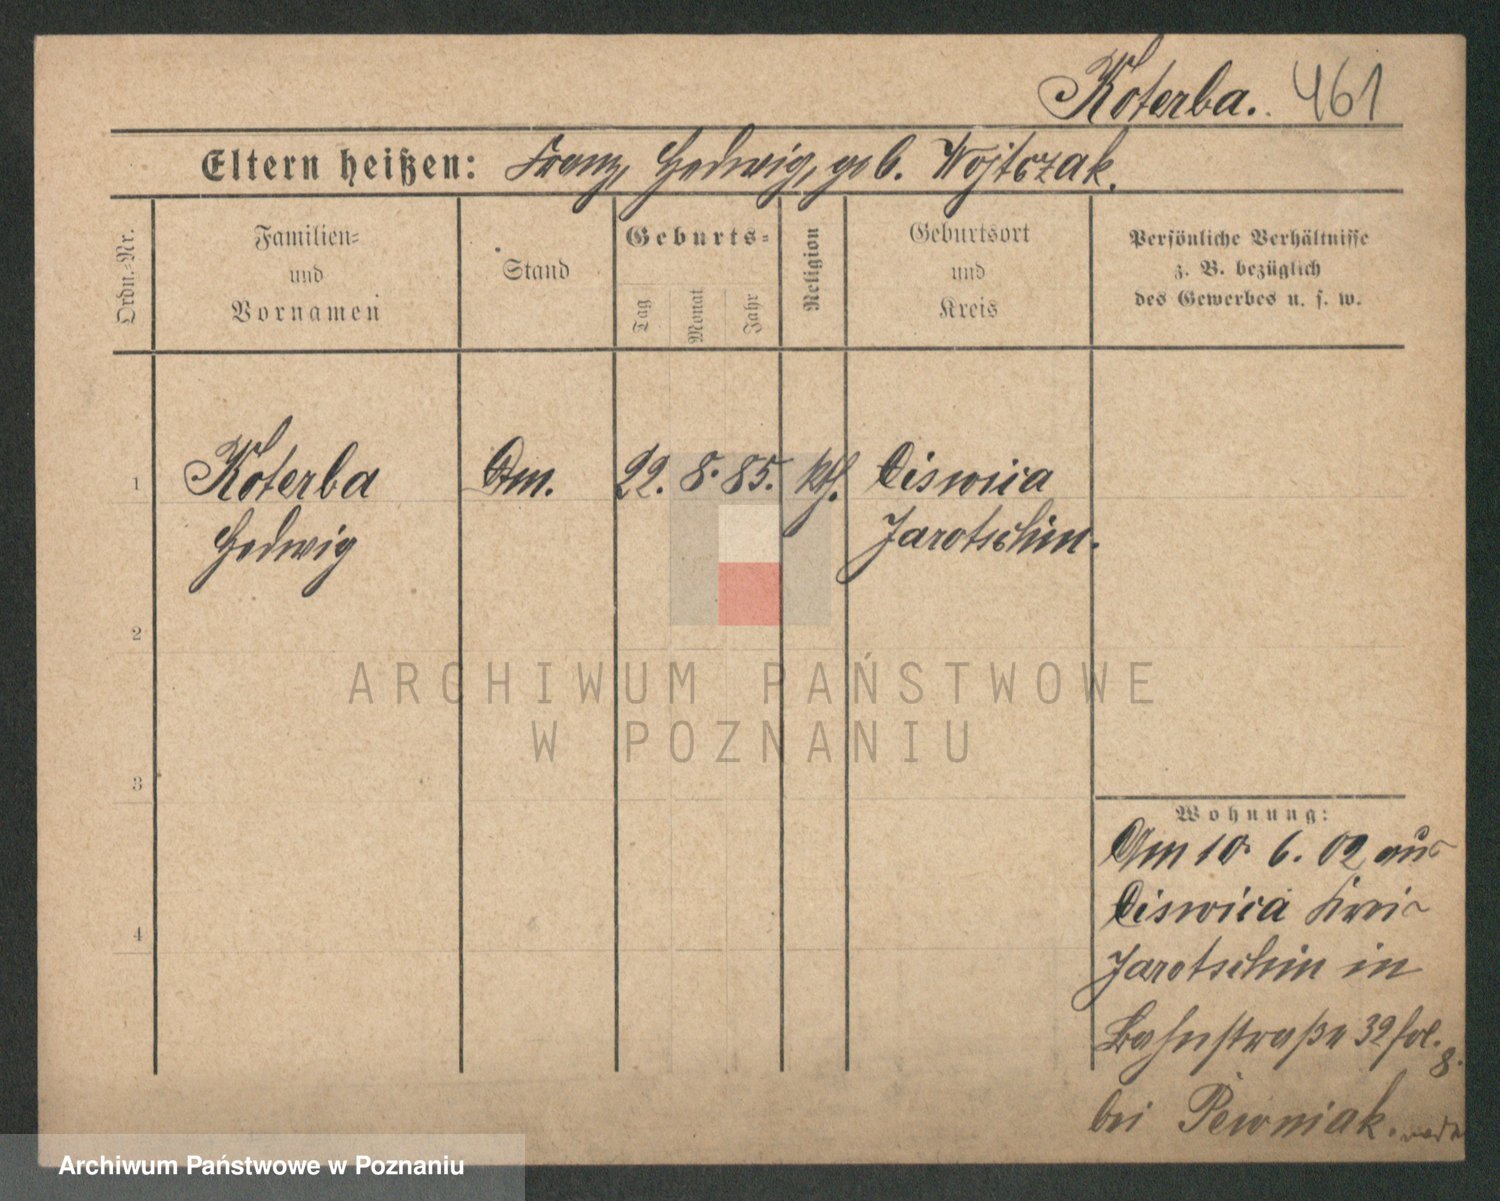 Koterba. 461
Eltern heißen: Franz, Hedwig, geb. Wojtczak.
Ordn.-Nr.
Familien-
und
Vornamen
Stand
Geburts-
Tag
Monat
Jahr
Religion
Geburtsort
und
Kreis
Persönliche Verhältnisse
z. B. bezüglich
des Gewerbes u. s. w.
1 Koterba 22. 8. 85. kth. Ciswica
Hedwig Jarotschin.
2
3
4
Wohnung:
Am 10. 6. 02 aus
Ciswica Kreis
Jarotschin in
Bahnstraße 32 fol. 8.
bei Pewniak.
ARCHIWUM PAŃSTWOWE
W POZNANIU
Archiwum Państwowe w Poznaniu